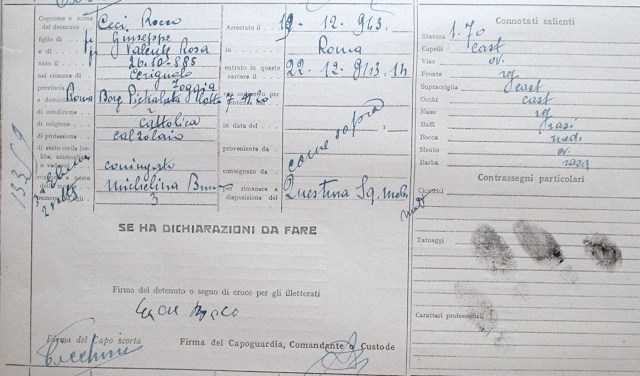 Cognome e nome del detenuto Ceci Rocco
figlio di fu Giuseppe
e di fu Valente Rosa
nato il 20-10-885
nel comune di Cerignola
provincia Foggia
e domicilio Roma Borg Pietralata Lotto 7
di condizione
di religione cattolica
di professione calzolaio
di stato civile coniugato
Michelina
3
Arrestato il 12.12.943.
in Roma
entrato in questo carcere il 22.12.943. 14
in data del come sopra
proveniente da
consegnato da
per rimanere a disposizione del Questura Sq. mob.
13359
SE HA DICHIARAZIONI DA FARE
Firma del detenuto o segno di croce per gli illetterati
Ceci Rocco
Firma del Capo scorta
Firma del Capoguardia, Comandante o Custode
Connotati salienti
Statura 1.70
Capelli cast
Viso ov.
Fronte reg
Sopracciglia cast
Occhi cast
Naso reg
Baffi rasi
Bocca med.
Mento ov.
Barba rasa
Contrassegni particolari
Cicatrici
Tatuaggi
Caratteri professionali